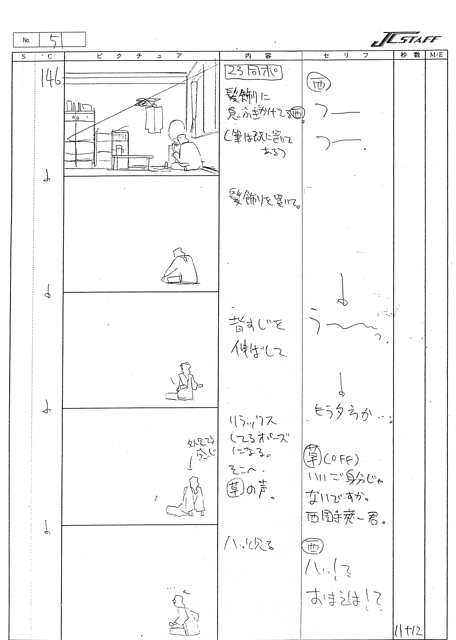 No. 5
J.C.STAFF
S
C
ピクチュア
内容
セリフ
秒数
M/E
146
23同ポ
髪飾りに
息ふきかけてる西。
(筆は既に置いて
ある)
西
フ――
フ――.
髪飾りを置いて。
背すじを
伸ばして
う〜〜っ。
もう夕方か…。
リラックス
してるポーズ
になる。
そこへ
草の声。
草(OFF)
いいご身分じゃ
ないですか。
ハッと見る
西
ハッ!?
おまえは!?
11+12